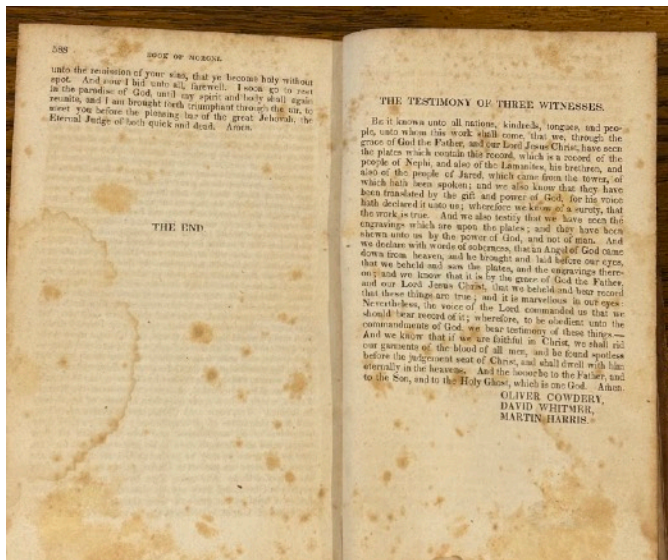 588
BOOK OF MORONI.
unto the remission of your sins, that ye become holy without
spot. And now I bid unto all, farewell. I soon go to rest
in the paradise of God, until my spirit and body shall again
reunite, and I am brought forth triumphant through the air, to
meet you before the pleasing bar of the great Jehovah, the
Eternal Judge of both quick and dead. Amen.
THE END
THE TESTIMONY OF THREE WITNESSES.
Be it known unto all nations, kindreds, tongues, and peo-
ple, unto whom this work shall come, that we, through the
grace of God the Father, and our Lord Jesus Christ, have seen
the plates which contain this record, which is a record of the
people of Nephi, and also of the Lamanites, his brethren, and
also of the people of Jared, which came from the tower, of
which hath been spoken; and we also know that they have
been translated by the gift and power of God, for his voice
hath declared it unto us; wherefore we know of a surety, that
the work is true. And we also testify that we have seen the
engravings which are upon the plates; and they have been
shewn unto us by the power of God, and not of man. And
we declare with words of soberness, that an Angel of God came
down from heaven, and he brought and laid before our eyes,
that we beheld and saw the plates, and the engravings there-
on; and we know that it is by the grace of God the Father,
and our Lord Jesus Christ, that we beheld and bear record
that these things are true; and it is marvellous in our eyes:
Nevertheless, the voice of the Lord commanded us that we
should bear record of it; wherefore, to be obedient unto the
commandments of God, we bear testimony of these things.—
And we know that if we are faithful in Christ, we shall rid
our garments of the blood of all men, and be found spotless
before the judgement seat of Christ, and shall dwell with him
eternally in the heavens. And the honor be to the Father, and
to the Son, and to the Holy Ghost, which is one God. Amen.
OLIVER COWDERY,
DAVID WHITMER,
MARTIN HARRIS.